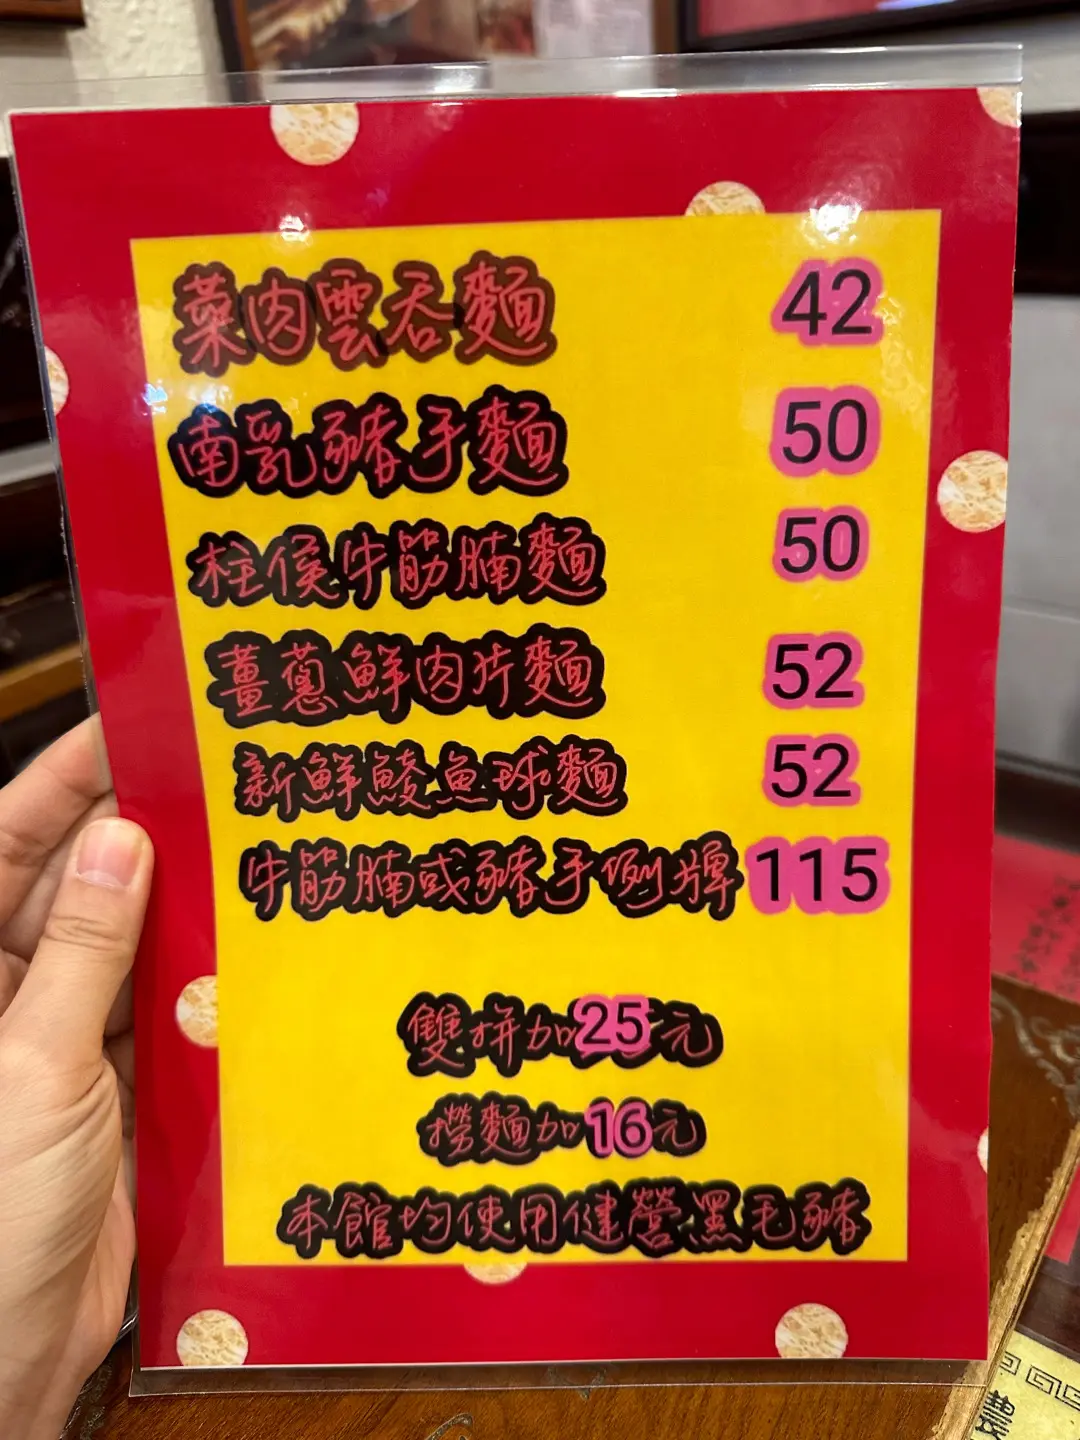 菜肉雲吞麵 42
南乳豬手麵 50
柱侯牛筋腩麵 50
薑蔥鮮肉片麵 52
新鮮鯪魚球麵 52
牛筋腩或豬手例牌 115
雙拼加25元
撈麵加16元
本館均使用健營黑毛豬